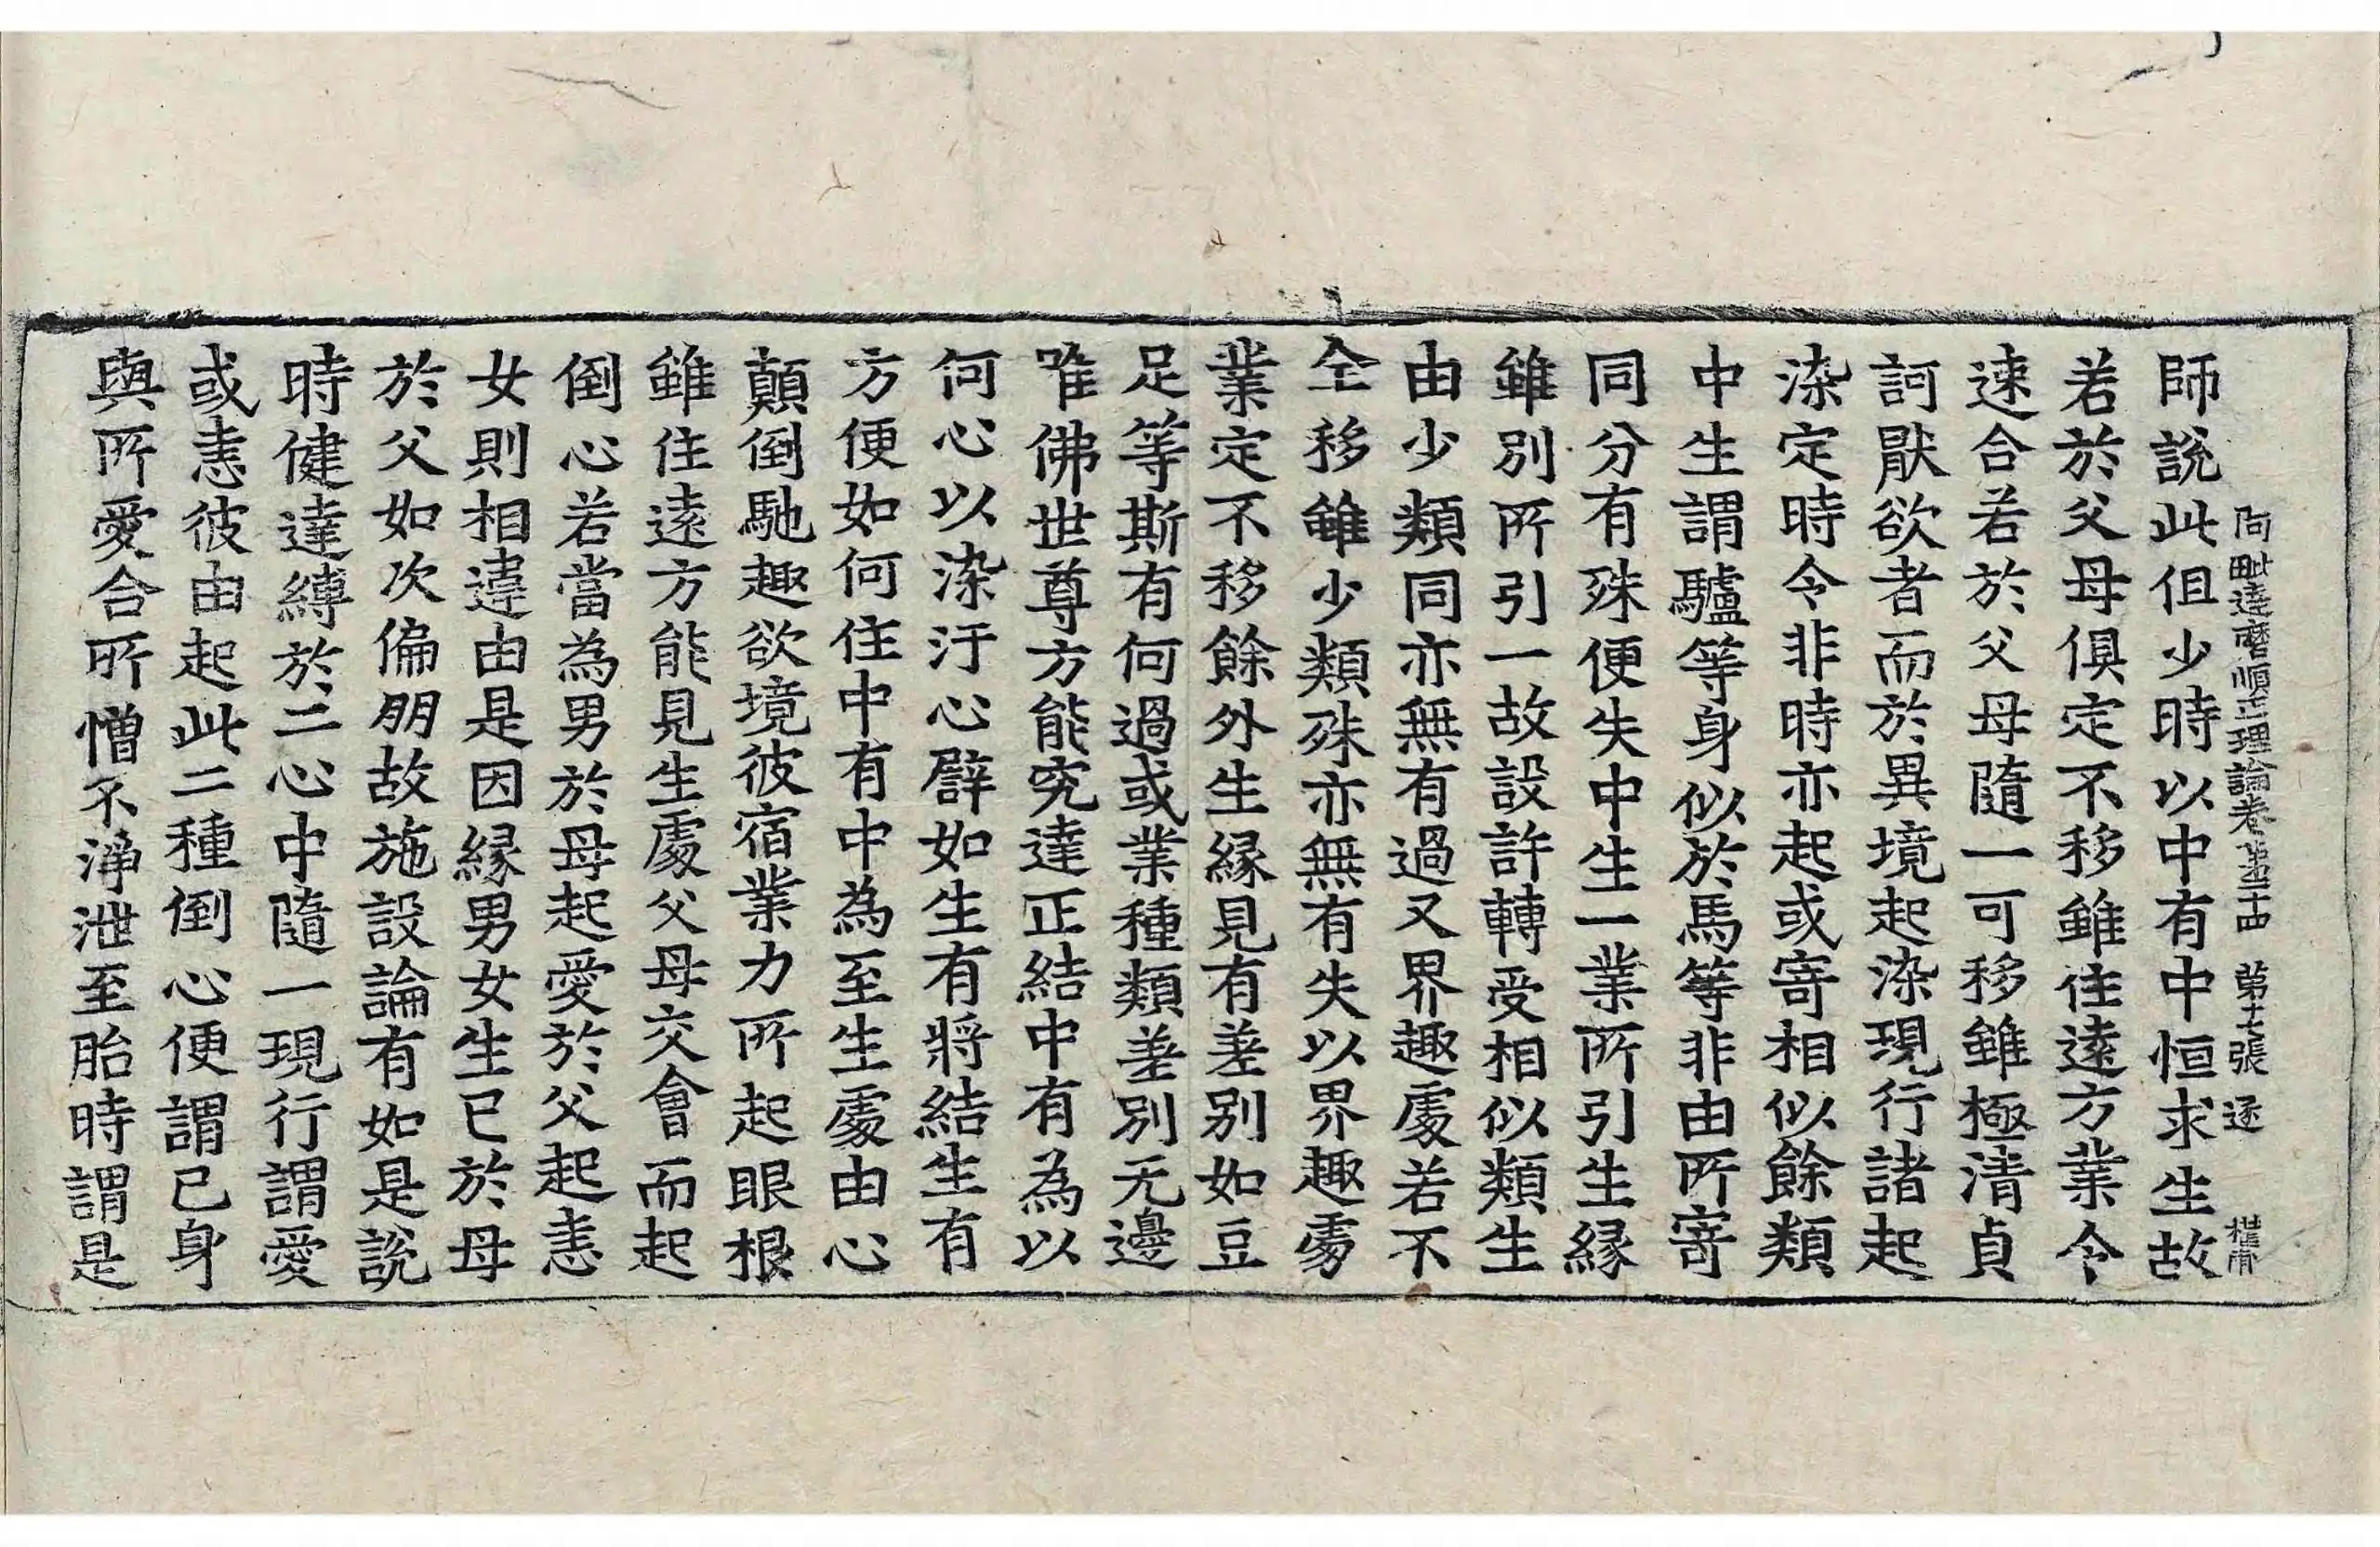 阿毗達磨順正理論卷第二十四 第十七張 逐
師說此但少時以中有中恒求生故
若於父母俱定不移雖住遠方業令
速合若於父母隨一可移雖極清貞
訶猒欲者而於異境起染現行諸起
染定時令非時亦起或寄相似餘類
中生謂驢等身似於馬等非由所寄
同分有殊便失中生一業所引生緣
雖別所引一故設許轉受相似類生
由少類同亦無有過又界趣處若不
全移雖少類殊亦無有失以界趣處
業定不移餘外生緣見有差別如豆
足等斯有何過或業種類差別无邊
唯佛世尊方能究達正結中有為以
何心以染汙心譬如生有將結生有
方便如何住中有中為至生處由心
顛倒馳趣欲境彼宿業力所起眼根
雖住遠方能見生處父母交會而起
倒心若當為男於母起愛於父起恚
女則相違由是因緣男女生已於母
於父如次偏朋故施設論有如是說
時健達縛於二心中隨一現行謂愛
或恚彼由起此二種倒心便謂己身
與所愛合所憎不淨泄至胎時謂是